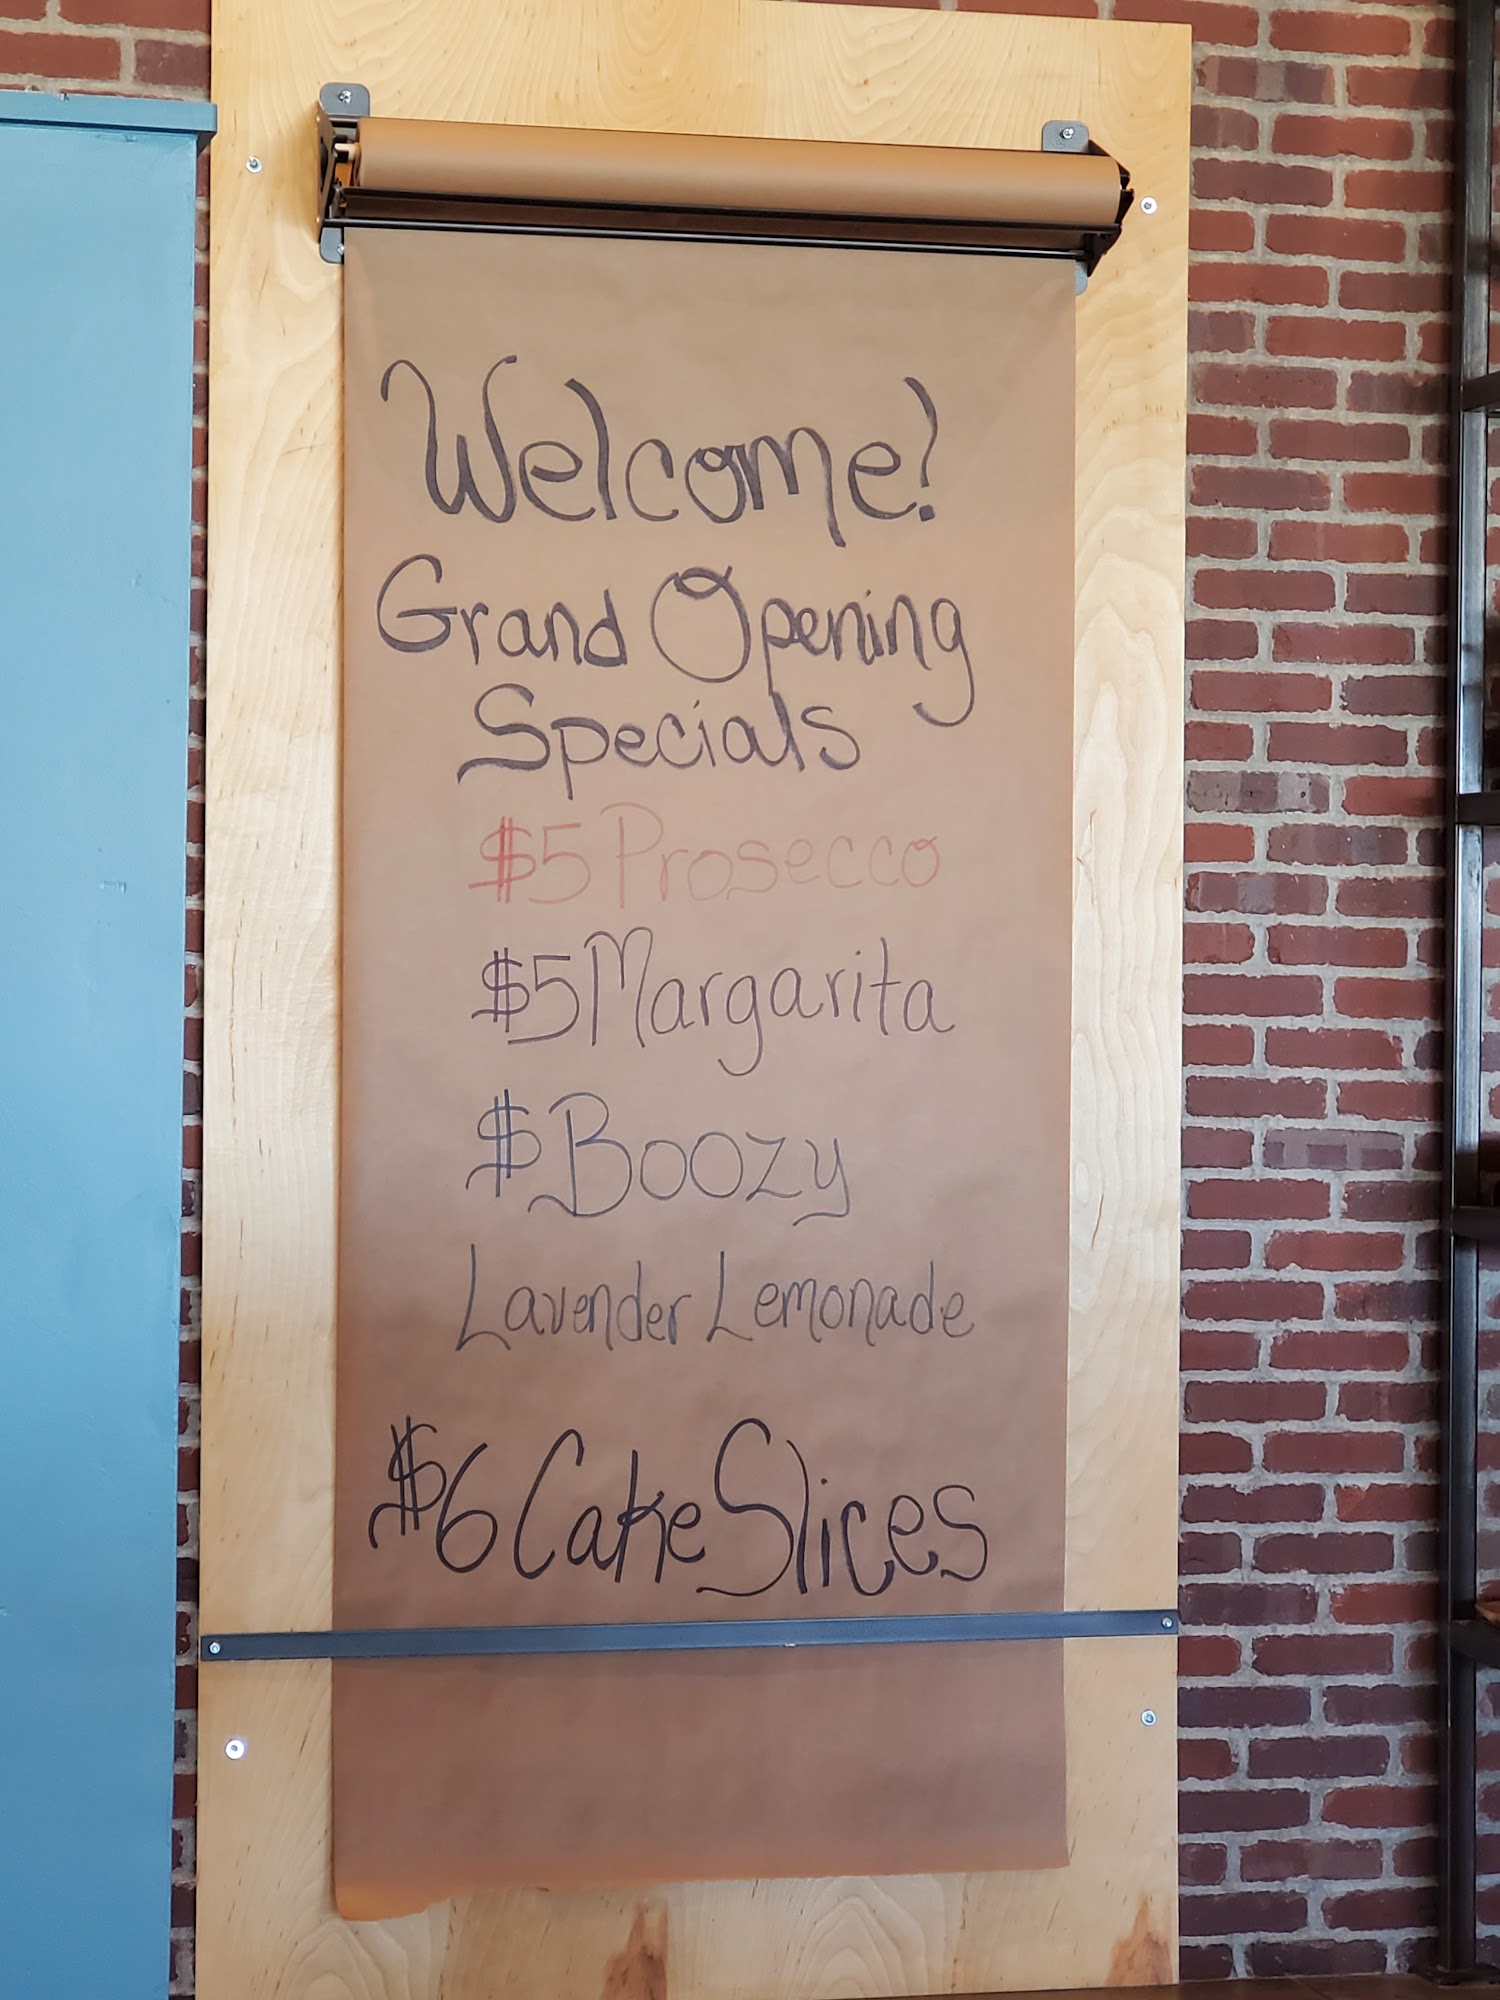 Welcome!
Grand Opening
Specials
$5 Prosecco
$5 Margarita
$ Boozy
Lavender Lemonade
$6 Cake Slices